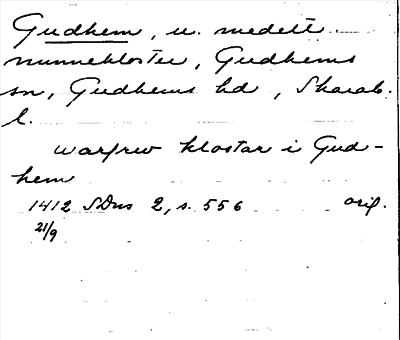 Gudhem, u. medelt.
nunnekloster, Gudhems
sn, Gudhems hd, Skarab.
l.
warfrw klostar i Gud-
hem
1412 SDns 2, s. 556 orig.
21/9